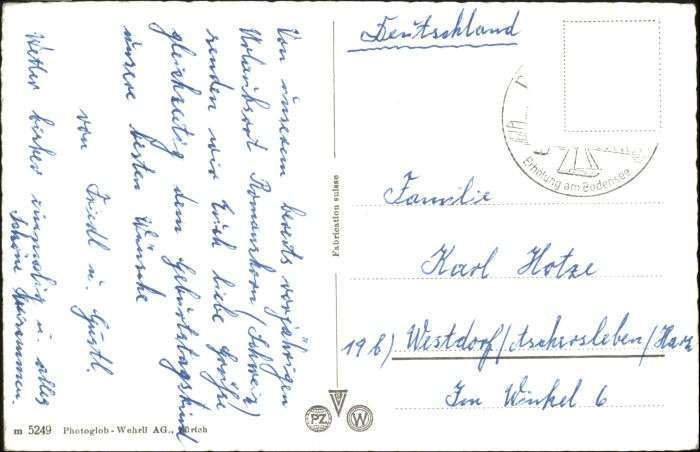 Von unserm bereits vorjährigen
Urlaubsort Romanshorn (Schweiz)
senden wir Euch liebe Grüße
gleichzeitig dem Geburtstagskind
unsere besten Wünsche
von Friedl u. Gustl.
Wetter bisher einmalig u. alles
schöne zusammen.
Deutschland
Erholung am Bodensee
Familie
Karl Hotze
19b) Westdorf/Aschersleben/Harz
Im Winkel 6
Fabrication suisse
PZ
W
m 5249 Photoglob-Wehrli AG., Zürich